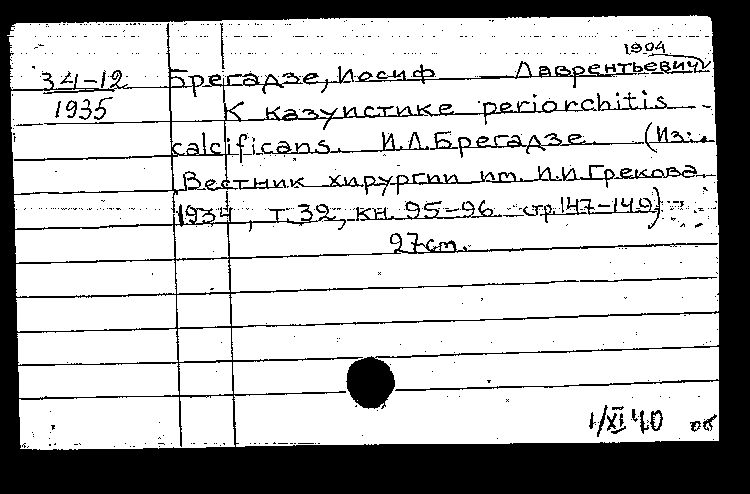 1904
34-12 Брегадзе, Иосиф Лаврентьевич
1935 К казуистике periorchitis
calcificans. И.Л.Брегадзе. (Из:
Вестник хирургии им. И.И.Грекова.
1934, т.32, кн. 95-96 стр.147-149)
27cm.
1/XI 40 об